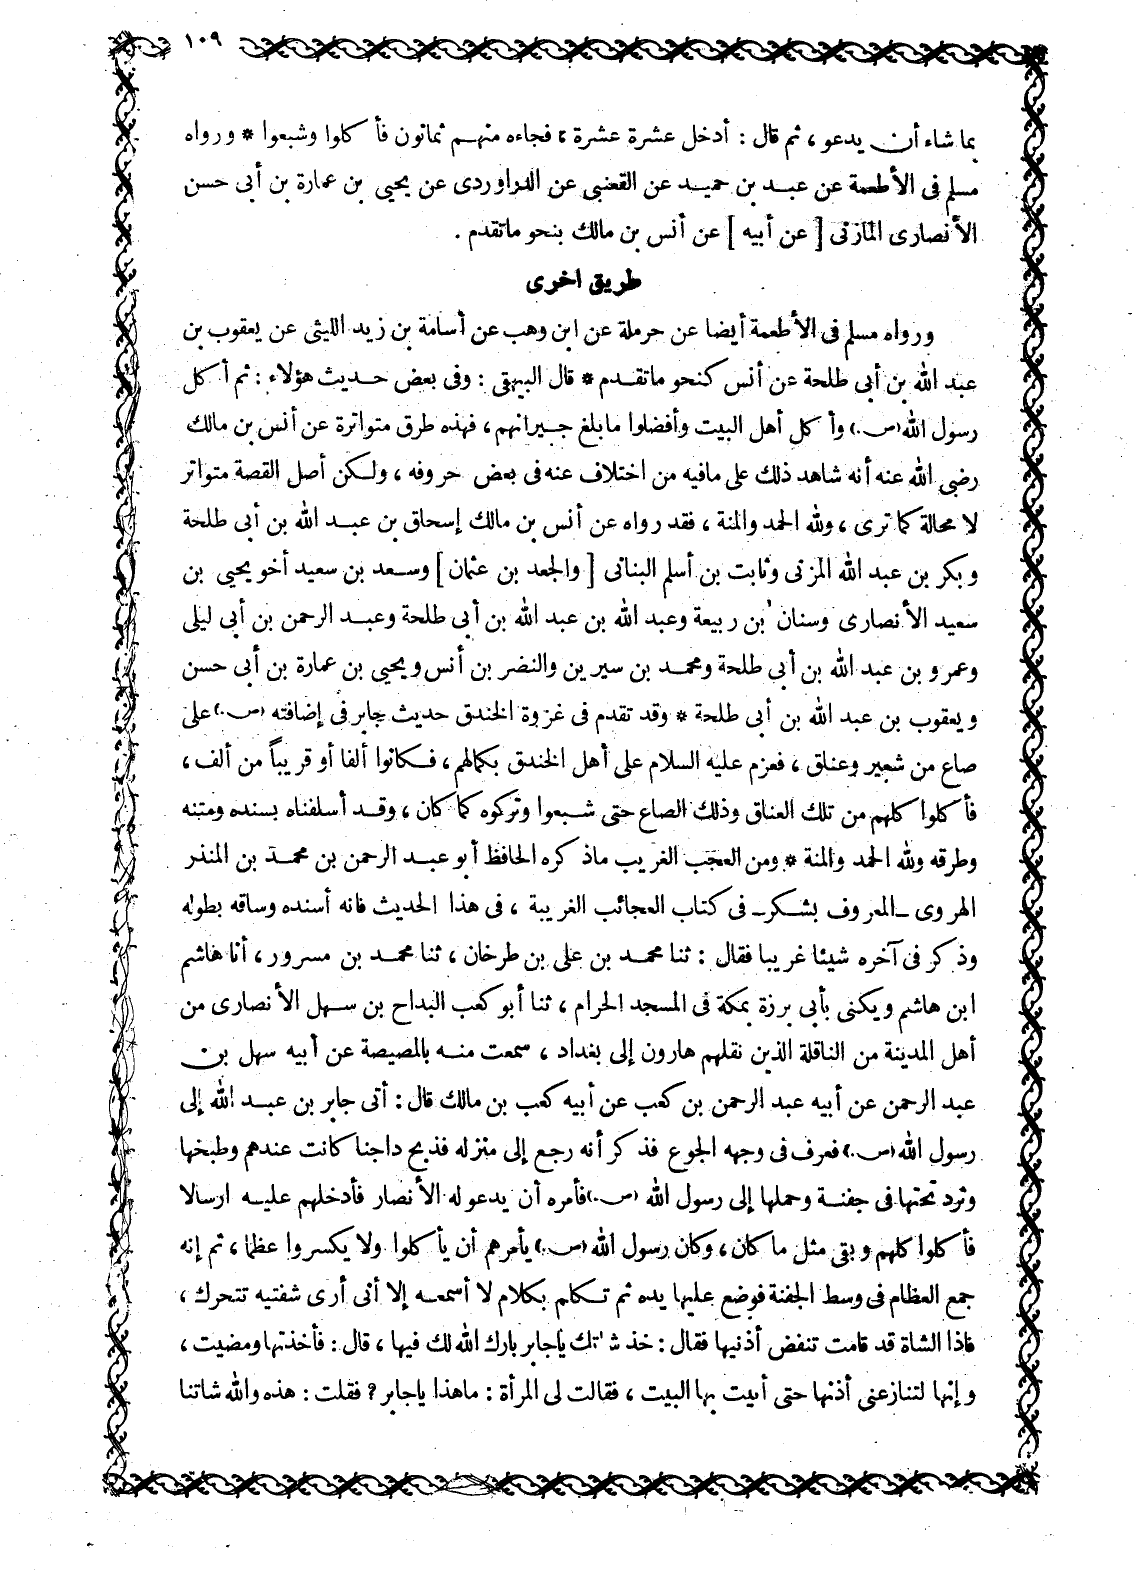 ١٠٩
بما شاء أن يدعو ، ثم قال : أدخل عشرة عشرة ، فجاءه منهم ثمانون فأ كلوا وشبعوا * ورواه
مسلم فى الأطعمة عن عبد بن حميد عن القعنبى عن الدراوردى عن يحيى بن عمارة بن أبى حسن
الأنصارى المازنى [ عن أبيه ] عن أنس بن مالك بنحو ماتقدم .
طريق اخرى
ورواه مسلم فى الأطعمة أيضا عن حرملة عن ابن وهب عن أسامة بن زيد الليثى عن يعقوب بن
عبد الله بن أبى طلحة عن أنس كنحو ماتقدم * قال البيهقى : وفى بعض حديث هؤلاء : ثم أ كل
رسول الله (ص) وأ كل أهل البيت وأفضلوا مابلغ جيرانهم ، فهذه طرق متواترة عن أنس بن مالك
رضى الله عنه أنه شاهد ذلك على مافيه من اختلاف عنه فى بعض حروفه ، ولكن أصل القصة متواتر
لا محالة كما ترى ، ولله الحمد والمنة ، فقد رواه عن أنس بن مالك إسحاق بن عبد الله بن أبى طلحة
وبكر بن عبد الله المزنى وثابت بن أسلم البنانى [ والجعد بن عثمان ] وسعد بن سعيد أخو يحيى بن
سعيد الأنصارى وسنان بن ربيعة وعبد الله بن عبد الله بن أبى طلحة وعبد الرحمن بن أبى ليلى
وعمرو بن عبد الله بن أبى طلحة ومحمد بن سيرين والنضر بن أنس ويحيى بن عمارة بن أبى حسن
ويعقوب بن عبد الله بن أبى طلحة * وقد تقدم فى غزوة الخندق حديث جابر فى إضافته (ص) على
صاع من شعير وعناق ، فعزم عليه السلام على أهل الخندق بكمالهم ، فكانوا ألفا أو قريباً من ألف ،
فأ كلوا كلهم من تلك العناق وذلك الصاع حتى شبعوا وتركوه كما كان ، وقد أسلفناه بسنده ومتنه
وطرقه ولله الحمد والمنة * ومن العجب الغريب ماذ كره الحافظ أبو عبد الرحمن بن محمد بن المنذر
الهروى ـ المعروف بشكر ـ فى كتاب العجائب الغريبة ، فى هذا الحديث فانه أسنده وساقه بطوله
وذ كر فى آخره شيئا غريبا فقال : ثنا محمد بن على بن طرخان ، ثنا محمد بن مسرور ، أنا هاشم
ابن هاشم ويكنى بأبى برزة بمكة فى المسجد الحرام ، ثنا أبو كعب البداح بن سهل الأنصارى من
أهل المدينة من الناقلة الذين نقلهم هارون إلى بغداد ، سمعت منه بالمصيصة عن أبيه سهل بن
عبد الرحمن عن أبيه عبد الرحمن بن كعب عن أبيه كعب بن مالك قال : أتى جابر بن عبد الله إلى
رسول الله (ص) فعرف فى وجهه الجوع فذ كر أنه رجع إلى منزله فذبح داجنا كانت عندهم وطبخها
وثرد تحتها فى جفنة وحملها إلى رسول الله (ص) فأمره أن يدعو له الأنصار فأدخلهم عليه ارسالا
فأ كلوا كلهم وبقى مثل ما كان ، وكان رسول الله (ص) يأمرهم أن يأ كلوا ولا يكسروا عظما ، ثم إنه
جمع العظام فى وسط الجفنة فوضع عليها يده ثم تكلم بكلام لا أسمعه إلا أنى أرى شفتيه تتحرك ،
فاذا الشاة قد قامت تنفض أذنيها فقال : خذ شاتك ياجابر بارك الله لك فيها ، قال : فأخذتها ومضيت ،
وإنها لتنازعنى أذنها حتى أتيت بها البيت ، فقالت لى المرأة : ماهذا ياجابر ؟ فقلت : هذه والله شاتنا